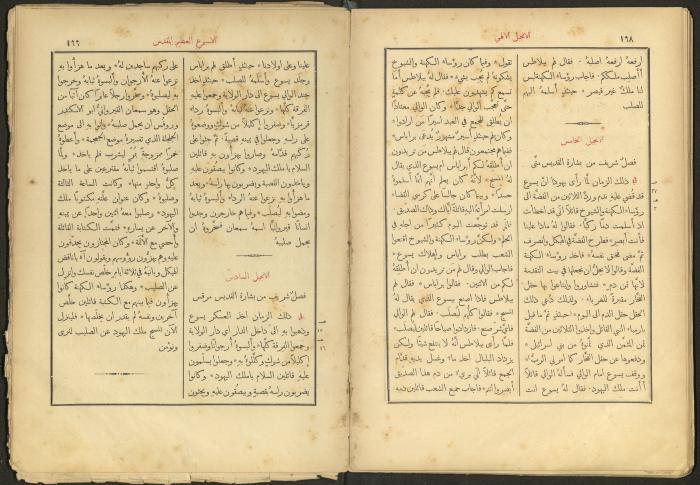 ١٦٨
الانجيل الالهي
ارفعهُ ارفعهُ اصلبهُ. فقال لهم بيلاطس
أأصلب ملككم. فاجاب رؤساء الكهنة ليس
لنا ملكٌ غير قيصر* حينئذٍ أسلمهُ اليهم
للصلب
الانجيل الخامس
فصلٌ شريف من بشارة القديس متّى
في ذلك الزمان لما رأى يهوذا انّ يسوع
قد قُضي عليهِ ندم وردّ الثلاثين من الفضة الى
رؤساء الكهنة والشيوخ* قائلاً اني قد اخطأت
اذ أسلمت دمًا زكيًّا. فقالوا لهُ ماذا علينا
فأنت ابصر* فطرح الفضة في الهيكل وانصرف
ثمّ مضى فخنق نفسهُ* فاخذ رؤساء الكهنة
الفضة وقالوا لا يحلّ ان نجعلها في بيت التقدمة
لانها ثمن دم* فتشاوروا وابتاعوا بها حقل
الفخّار مقبرةً للغرباء. ولذلك دُعي ذلك
الحقل حقل الدم الى اليوم* حينئذٍ تمّ ما قيل
بارميا النبي القائل واخذوا الثلاثين من الفضة
ثمن المثمن الذي ثمّنوهُ من بني اسرائيل*
ودفعوها عن حقل الفخّار كما امرني الربّ*
ووقف يسوع امام الوالي فسألهُ الوالي قائلاً
أأنت ملك اليهود. فقال لهُ يسوع انت
تقول* وفيما كان رؤساء الكهنة والشيوخ
يشكونهُ لم يجب بشيءٍ* فقال لهُ بيلاطس أما
تسمع كم يشهدون عليك. فلم يجبهُ عن كلمةٍ
حتى تعجّب الوالي جدًّا* وكان الوالي معتادًا
ان يُطلق للجمع في العيد اسيرًا من ارادوا*
وكان لهم حينئذٍ اسيرٌ مشهورٌ يُدعى برابّاس*
ففيما هم مجتمعون قال لهم بيلاطس من تريدون
ان أُطلقهُ لكم أبرابّاس ام يسوع الذي يقال
لهُ المسيح* لانهُ كان يعلم انهم انما أسلموهُ
حسدًا* وبينما كان جالسًا على كرسي القضاء
ارسلت امرأتهُ اليهِ قائلةً اياك وذاك الصديق.
فاني قد توجعت اليوم كثيرًا من اجلهِ في
الحلم* ولكنّ رؤساء الكهنة والشيوخ اقنعوا
الشعب بطلب برابّاس وإهلاك يسوع*
فاجاب الوالي وقال لهم من تريدون ان أُطلقهُ
لكم من الاثنين. فقالوا برابّاس* فقال لهم
بيلاطس فماذا اصنع بيسوع الذي يقال لهُ
المسيح* فقالوا كلّهم ليُصلب. فقال لهم الوالي
فايّ شرٍّ صنع* فازدادوا صياحًا قائلين ليُصلب*
فلما رأى بيلاطس انّهُ لا ينتفع شيئًا ولكن
يزداد البلبال اخذ ماءً وغسل يديهِ قدّام
الجمع قائلاً اني بريءٌ من دم هذا الصديق
ابصروا انتم* فاجاب جميع الشعب قائلين دمه
الاسبوع العظيم المقدس
علينا وعلى اولادنا* حينئذٍ أطلق لهم برابّاس
وجلد يسوع وأسلمهُ للصلب* حينئذٍ اخذ
جند الوالي يسوع الى دار الولاية وجمعوا عليهِ
الفرقة كلّها* ونزعوا عنهُ ثيابهُ وألبسوهُ رداءً
قرمزيًّا* وضفروا إكليلاً من شوك ووضعوهُ
على رأسهِ وجعلوا في يمينهِ قصبةً. ثمّ جثوا على
رُكبهم قدّامهُ وصاروا يهزأون بهِ قائلين
السلام يا ملك اليهود* وكانوا يبصقون عليهِ
وياخذون القصبة ويضربون بها رأسهُ* وبعد
ما هزأوا بهِ نزعوا عنهُ الرداء وألبسوهُ ثيابهُ
ومضوا بهِ ليُصلَب* وفيما هم خارجون وجدوا
انسانًا قيروانيًّا اسمهُ سمعان فسخّروهُ ان
يحمل صليبهُ
الانجيل السادس
فصلٌ شريف من بشارة القديس مرقس
في ذلك الزمان اخذ العسكر يسوع
وذهبوا بهِ الى داخل الدار اي دار الولاية
وجمعوا الفرقة كلّها* وألبسوهُ أرجوانًا وضفروا
إكليلاً من شوك وكلّلوهُ بهِ* وجعلوا يسلّمون
عليهِ قائلين السلام يا ملك اليهود* وكانوا
يضربون رأسهُ بقصبةٍ ويبصقون عليهِ ويجثون
على ركبهم ساجدين لهُ* وبعد ما هزأوا بهِ
نزعوا عنهُ الأرجوان وألبسوهُ ثيابهُ وخرجوا
بهِ ليصلبوهُ* وسخّروا رجلاً عابرًا كان آتيًا من
الحقل وهو سمعان القيرواني ابو ألكسندر
وروفُس ان يحمل صليبهُ* وأتوا بهِ الى موضع
الجلجلة الذي تفسيرهُ موضع الجمجمة* وأعطوهُ
خمرًا ممزوجةً بمُرٍّ ليشرب فلم ياخذ. ولمّا
صلبوهُ اقتسموا ثيابهُ مقترعين على ما ياخذ
كلّ واحدٍ منها* وكانت الساعة الثالثة
وصلبوهُ* وكان عنوان علّتهِ مكتوبًا ملك
اليهود* وصلبوا معهُ لصّين واحدًا عن يمينهِ
والآخر عن يسارهِ* فتمّت الكتابة القائلة
وأُحصي مع الأثمة* وكان المجتازون يجدّفون
عليهِ وهم يهزّون رؤوسهم ويقولون آه يا ناقض
الهيكل وبانيهُ في ثلاثة ايام* خلّص نفسك وانزل
عن الصليب* وهكذا رؤساء الكهنة كانوا
يهزأون فيما بينهم مع الكتبة قائلين خلّص
آخرين ونفسهُ لم يقدر ان يخلّصها* فلينزل
الآن المسيح ملك اليهود عن الصليب لنرى
ونؤمن